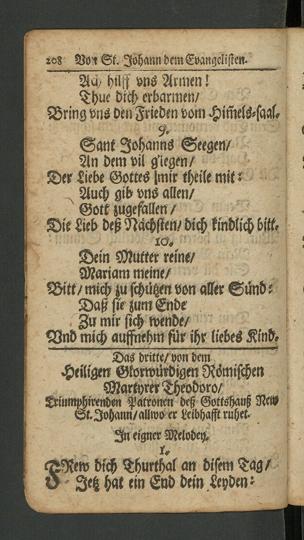 208 Von St. Johann dem Evangelisten.
Ach hilff vns Armen!
Thue dich erbarmen/
Bring vns den Frieden vom Him̃els-saal.
9.
Sant Johanns Seegen/
An dem vil g'legen/
Der Liebe Gottes mir theile mit:
Auch gib vns allen/
Gott zugefallen/
Die Lieb deß Nächsten/ dich kindlich bitt.
10.
Dein Mutter reine/
Mariam meine/
Bitt/ mich zu schützen von aller Sünd:
Daß sie zum Ende
Zu mir sich wende/
Vnd mich auffnehm für ihr liebes Kind.
Das dritte/ von dem
Heiligen Glorwürdigen Römischen
Martyrer Theodoro/
Triumphirenden Patronen deß Gottshauß New
St. Johann/ allwo er Leibhafft ruhet.
In eigner Melodey.
1.
FRew dich Thurthal an disem Tag/
Jetz hat ein End dein Leyden: